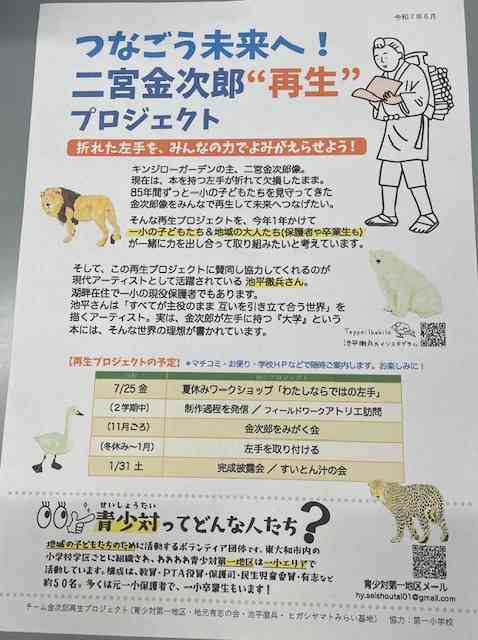 令和7年6月
つなごう未来へ！
二宮金次郎“再生”
プロジェクト
折れた左手を、みんなの力でよみがえらせよう！
キンジローガーデンの主、二宮金次郎像。
現在は、本を持つ左手が折れて欠損したまま。
85年間ずっと一小の子どもたちを見守ってきた
金次郎像をみんなで再生して未来へつなげたい。
そんな再生プロジェクトを、今年1年かけて
一小の子どもたち＆地域の大人たち(保護者や卒業生も)
が一緒に力を出し合って取り組みたいと考えています。
そして、この再生プロジェクトに賛同し協力してくれるのが
現代アーティストとして活躍されている 池平徹兵さん。
湖畔在住で一小の現役保護者でもあります。
池平さんは「すべてが主役のまま 互いを引き立て合う世界」を
描くアーティスト。実は、金次郎が左手に持つ『大学』という
本には、そんな世界の理想が書かれています。
Teppei Ikehira
池平徹兵のインスタグラム
【再生プロジェクトの予定】＊マチコミ・お便り・学校HPなどで随時ご案内します。お楽しみに！
7/25 金 夏休みワークショップ「わたしならではの左手」
(２学期中) 制作過程を発信 ／ フィールドワークアトリエ訪問
(11月ごろ) 金次郎をみがく会
(冬休み～1月) 左手を取り付ける
1/31 土 完成披露会 ／ すいとん汁の会
せいしょうたい
青少対ってどんな人たち？
地域の子どもたちのために活動するボランティア団体です。東大和市内の
小学校学区ごとに組織され、われわれ青少対第一地区は一小エリアで
活動しています。構成は、教員・PTA役員・保護司・民生児童委員・有志など
約50名。多くは元一小保護者で、一小卒業生もいます！
青少対第一地区メール
hy.seishoutai01@gmail.com
チーム金次郎再生プロジェクト (青少対第一地区・地元有志の会・池平徹兵・ヒガシヤマトみらい基地) 協力：第一小学校